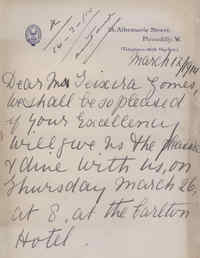 Albemarle Street,
Piccadilly. W.
March 12/1914
Dear Mr Teixeira Gomes,
we shall be so pleased
if your Excellency
will give us the pleasure
& dine with us, on
Thursday March 26,
at 8, at the Carlton
Hotel.